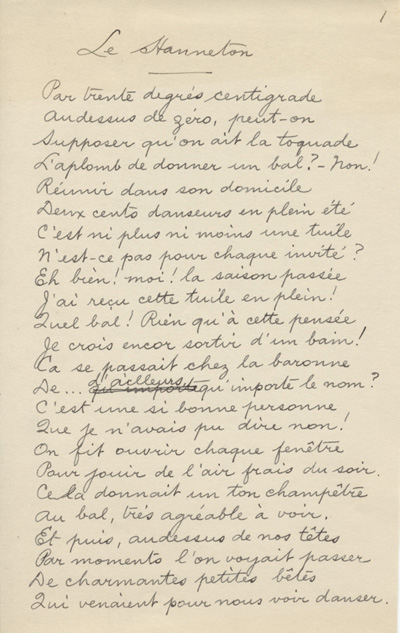 1
Le Hanneton
Par trente degrés centigrade
Audessus de zéro, peut-on
Supposer qu'on ait la toquade
L'aplomb de donner un bal? - Non!
Réunir dans son domicile
Deux cents danseurs en plein été
C'est ni plus ni moins une tuile
N'est-ce pas pour chaque invité?
Eh bien! moi! la saison passée
J'ai reçu cette tuile en plein!
Quel bal! Rien qu'à cette pensée
Je crois encor sortir d'un bain!
Ca se passait chez la baronne
De... d'ailleurs, qu'importe qu'importe le nom?
C'est une si bonne personne
Que je n'avais pu dire non!
On fit ouvrir chaque fenêtre
Pour jouir de l'air frais du soir.
Cela donnait un ton champêtre
Au bal, très agréable à voir.
Et puis, audessus de nos têtes
Par moments l'on voyait passer
De charmantes petites bêtes
Qui venaient pour nous voir danser.